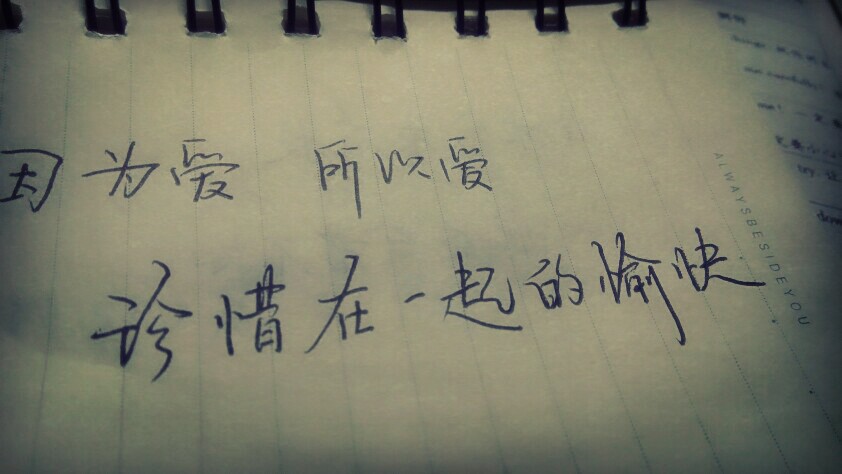 因为爱 所以爱
珍惜在一起的愉快
ALWAYSBESIDEYOU